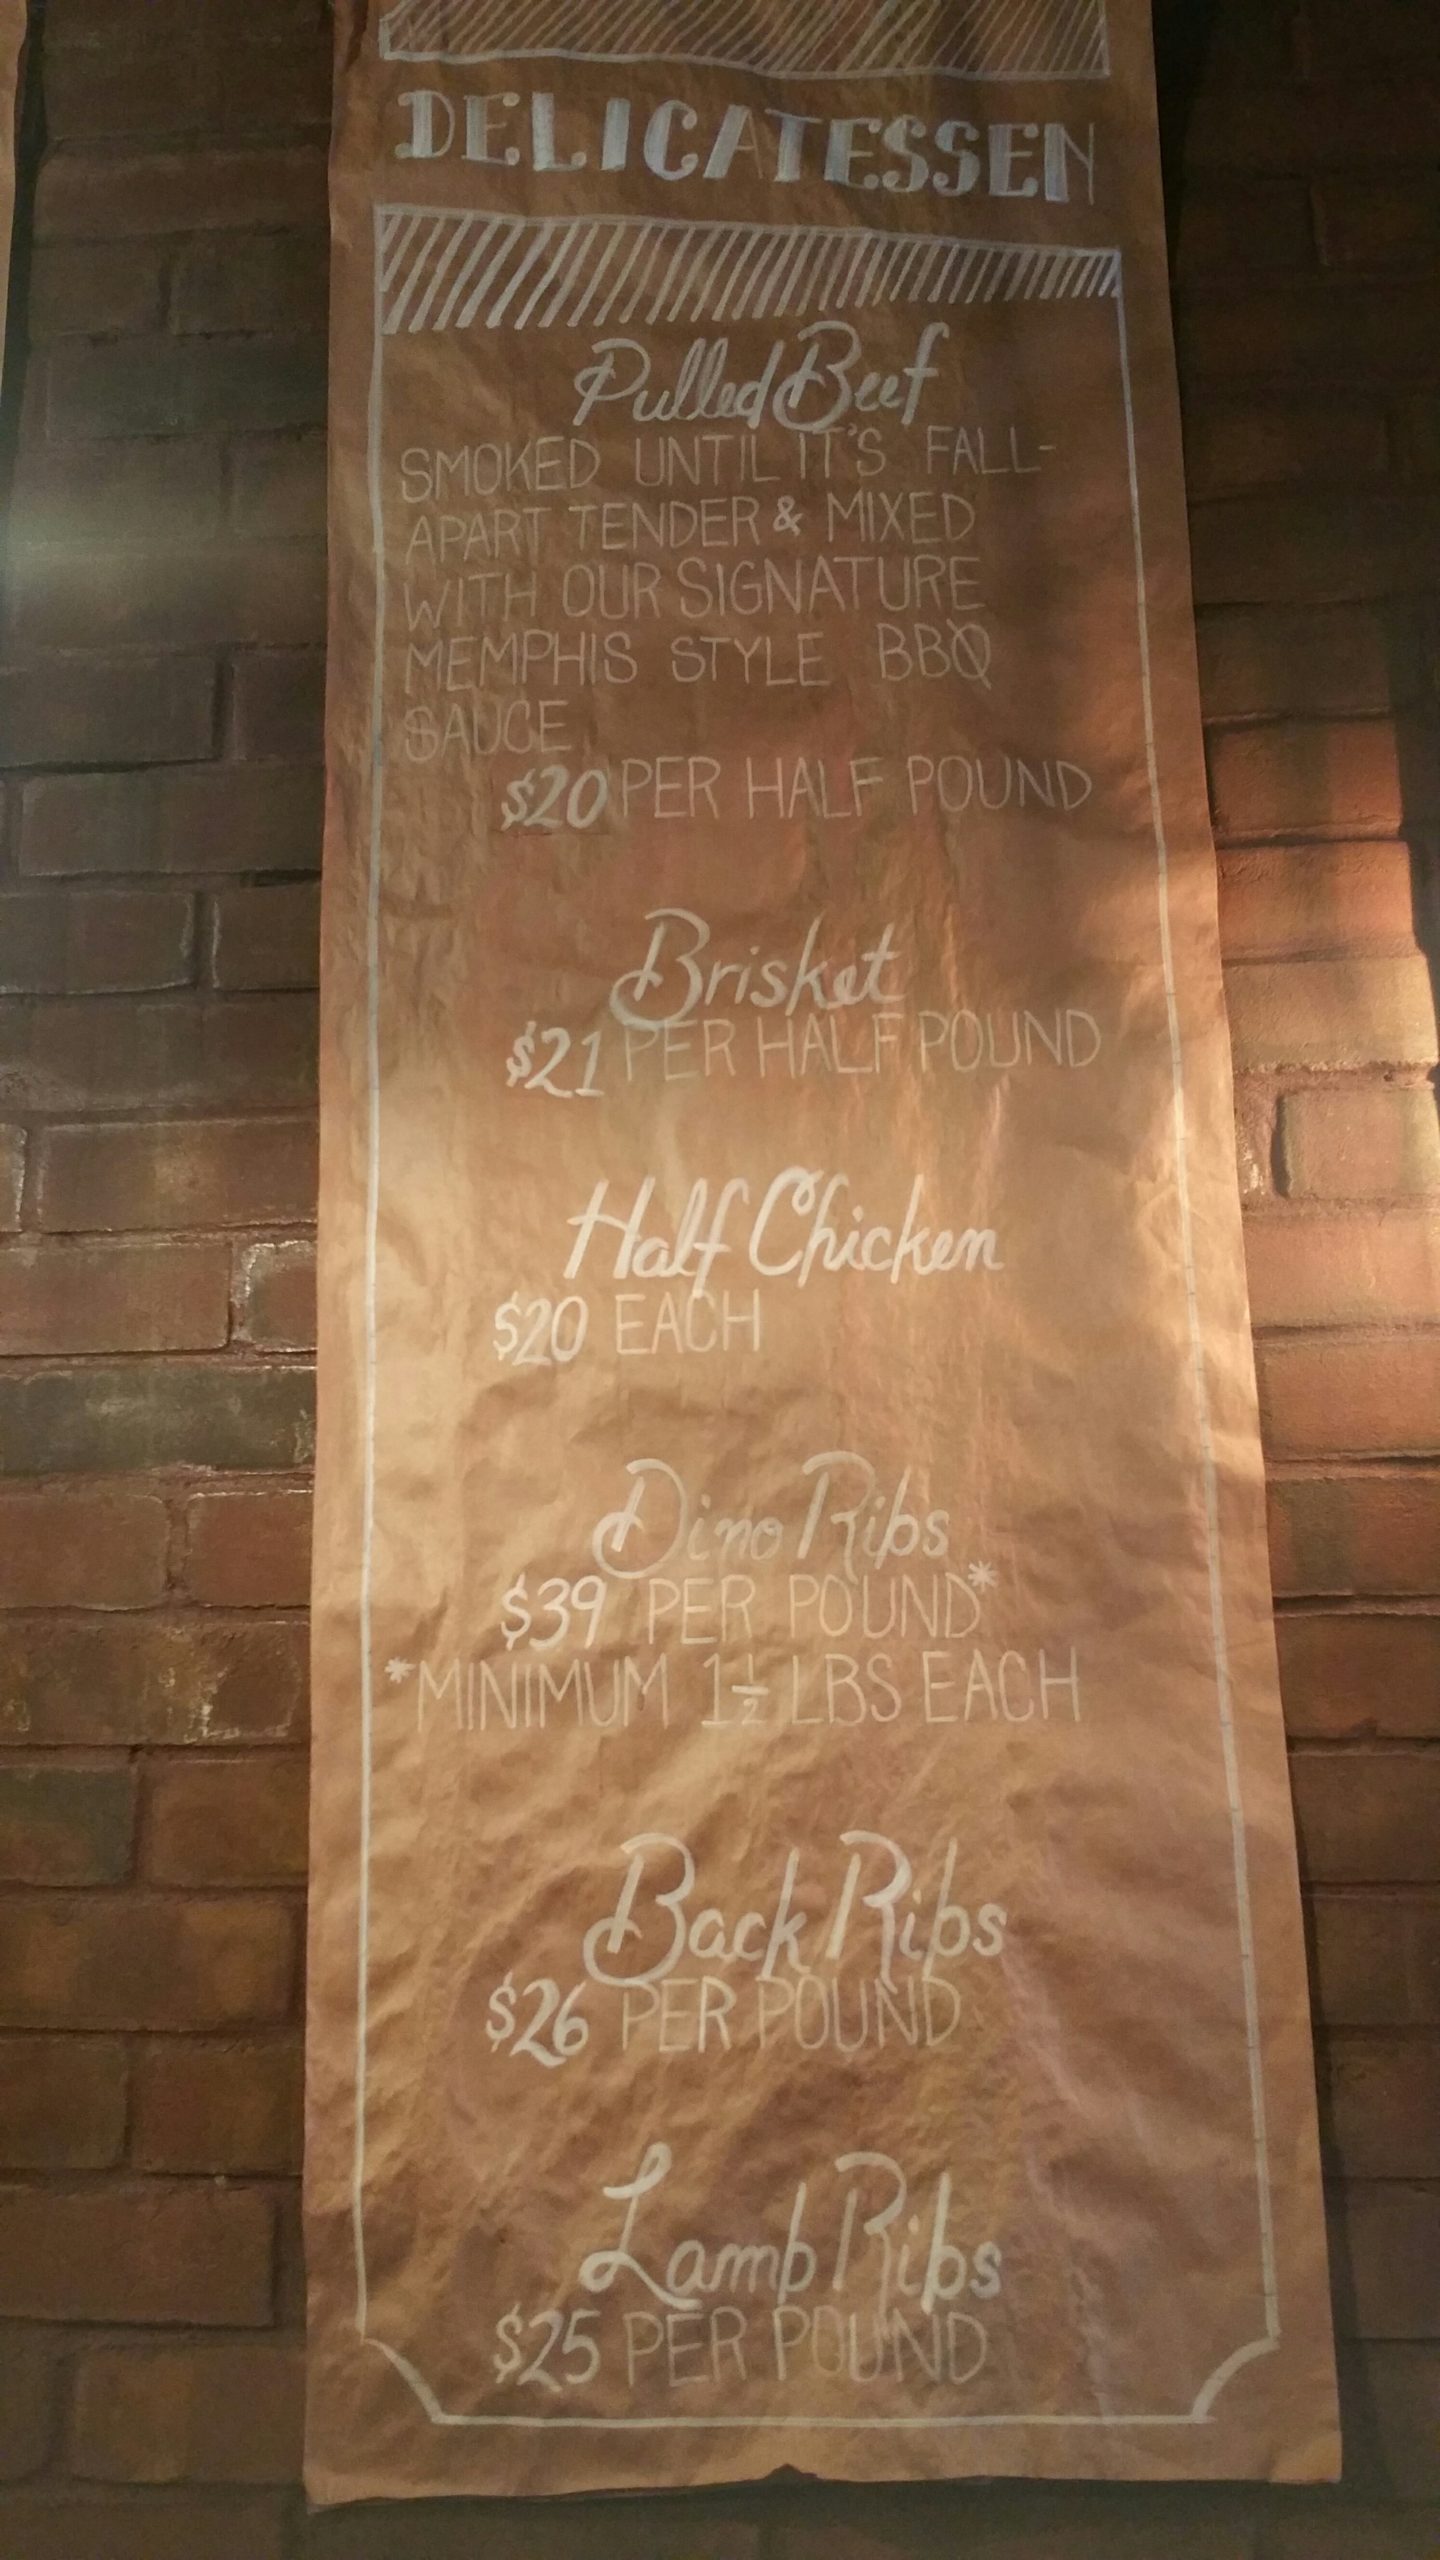 DELICATESSEN
Pulled Beef
SMOKED UNTIL IT'S FALL-
APART TENDER & MIXED
WITH OUR SIGNATURE
MEMPHIS STYLE BBQ
SAUCE
$20 PER HALF POUND
Brisket
$21 PER HALF POUND
Half Chicken
$20 EACH
Dino Ribs
$39 PER POUND*
*MINIMUM 1 1/2 LBS EACH
Back Ribs
$26 PER POUND
Lamb Ribs
$25 PER POUND